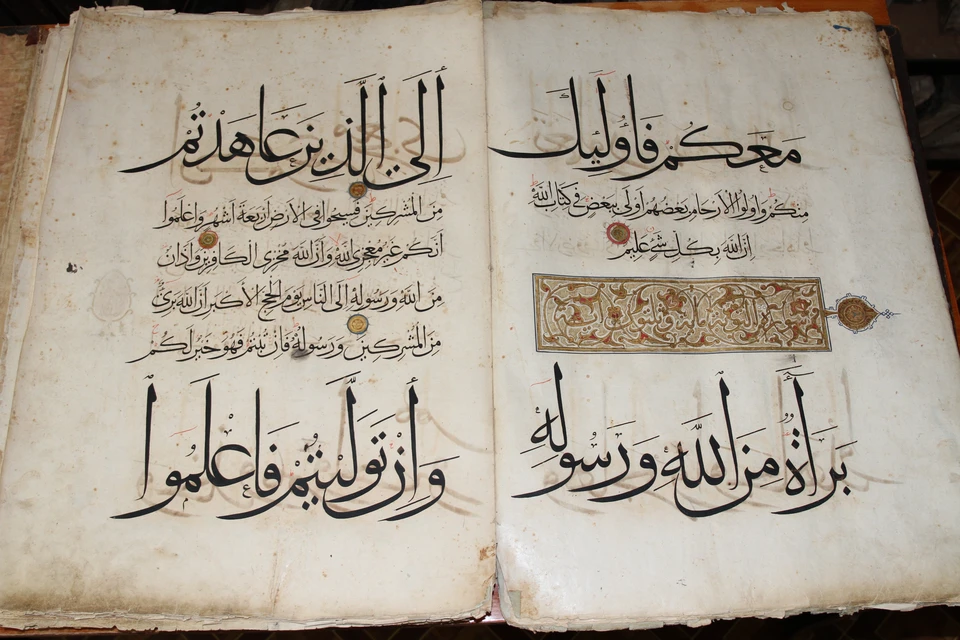 مَعَكُمْ فَأُولَئِكَ
مِنكُمْ وَأُولُوا الْأَرْحَامِ بَعْضُهُمْ أَوْلَى بِبَعْضٍ فِي كِتَابِ اللَّهِ
إِنَّ اللَّهَ بِكُلِّ شَيْءٍ عَلِيمٌ
سورة التوبة مائة
بَرَاءَةٌ مِنَ اللَّهِ وَرَسُولِهِ
إِلَى الَّذِينَ عَاهَدْتُمْ
مِنَ الْمُشْرِكِينَ فَسِيحُوا فِي الْأَرْضِ أَرْبَعَةَ أَشْهُرٍ وَاعْلَمُوا
أَنَّكُمْ غَيْرُ مُعْجِزِي اللَّهِ وَأَنَّ اللَّهَ مُخْزِي الْكَافِرِينَ وَأَذَانٌ
مِنَ اللَّهِ وَرَسُولِهِ إِلَى النَّاسِ يَوْمَ الْحَجِّ الْأَكْبَرِ أَنَّ اللَّهَ بَرِيءٌ
مِنَ الْمُشْرِكِينَ وَرَسُولُهُ فَإِنْ تُبْتُمْ فَهُوَ خَيْرٌ لَكُمْ
وَإِنْ تَوَلَّيْتُمْ فَاعْلَمُوا